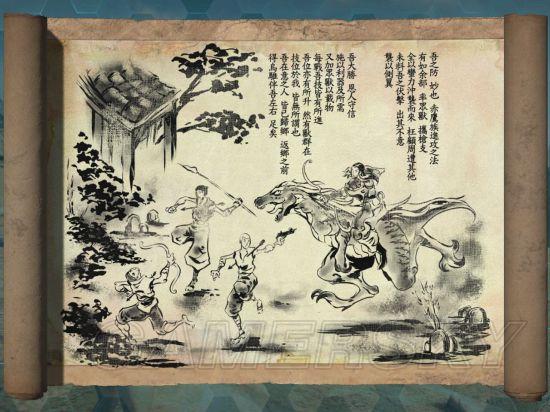 吾之防 妙也 赤鷹族進攻之法
有如余部 率眾獸 攜槍支
全以蠻力沖襲而來 枉顧周遭其他
未料吾之伏擊 出其不意
襲以側翼
吾大勝 恩人守信
施以利器及所需
又加眾獸以載物
每戰吾技皆有所進
吾位亦有所升 然有獸群在
技位於我 皆無所謂也
吾在意之人 皆已歸鄉 返鄉之前
得烏雖伴吾左右 足矣
GAMERSKY